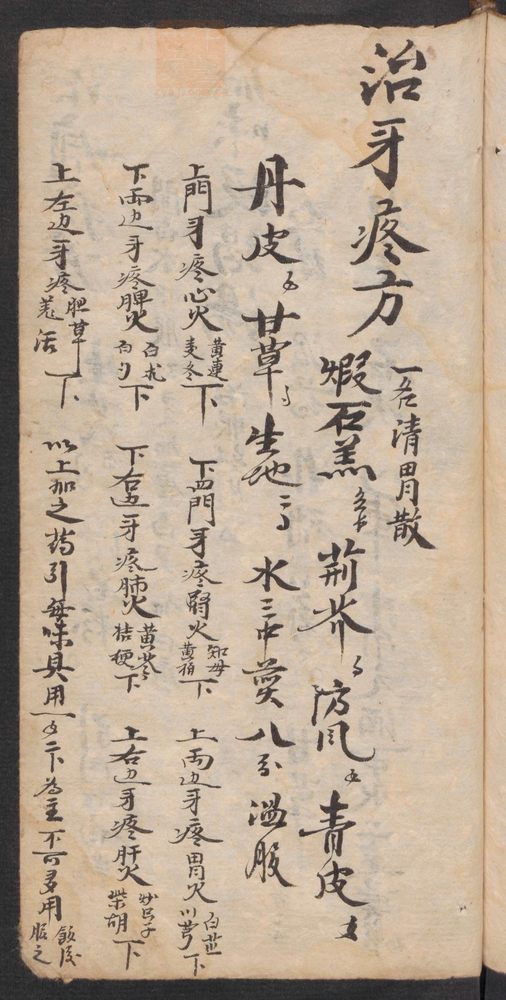 治牙疼方
一名清胃散
煆石羔 荆芥 防风 青皮
丹皮 甘草 生地 水三中煲八分温服
上門牙疼心火 黄連 麦冬 下
下四門牙疼腎火 知母 黄柏 下
上两边牙疼胃火 白芷 川芎 下
下两边牙疼脾火 白术 白勺 下
下右边牙疼肺火 黄芩 桔梗 下
上右边牙疼肝火 炒 子 柴胡 下
上左边牙疼 胆草 羌活 下
以上加之药引每味具用一 下為主不可多用 飯後服之